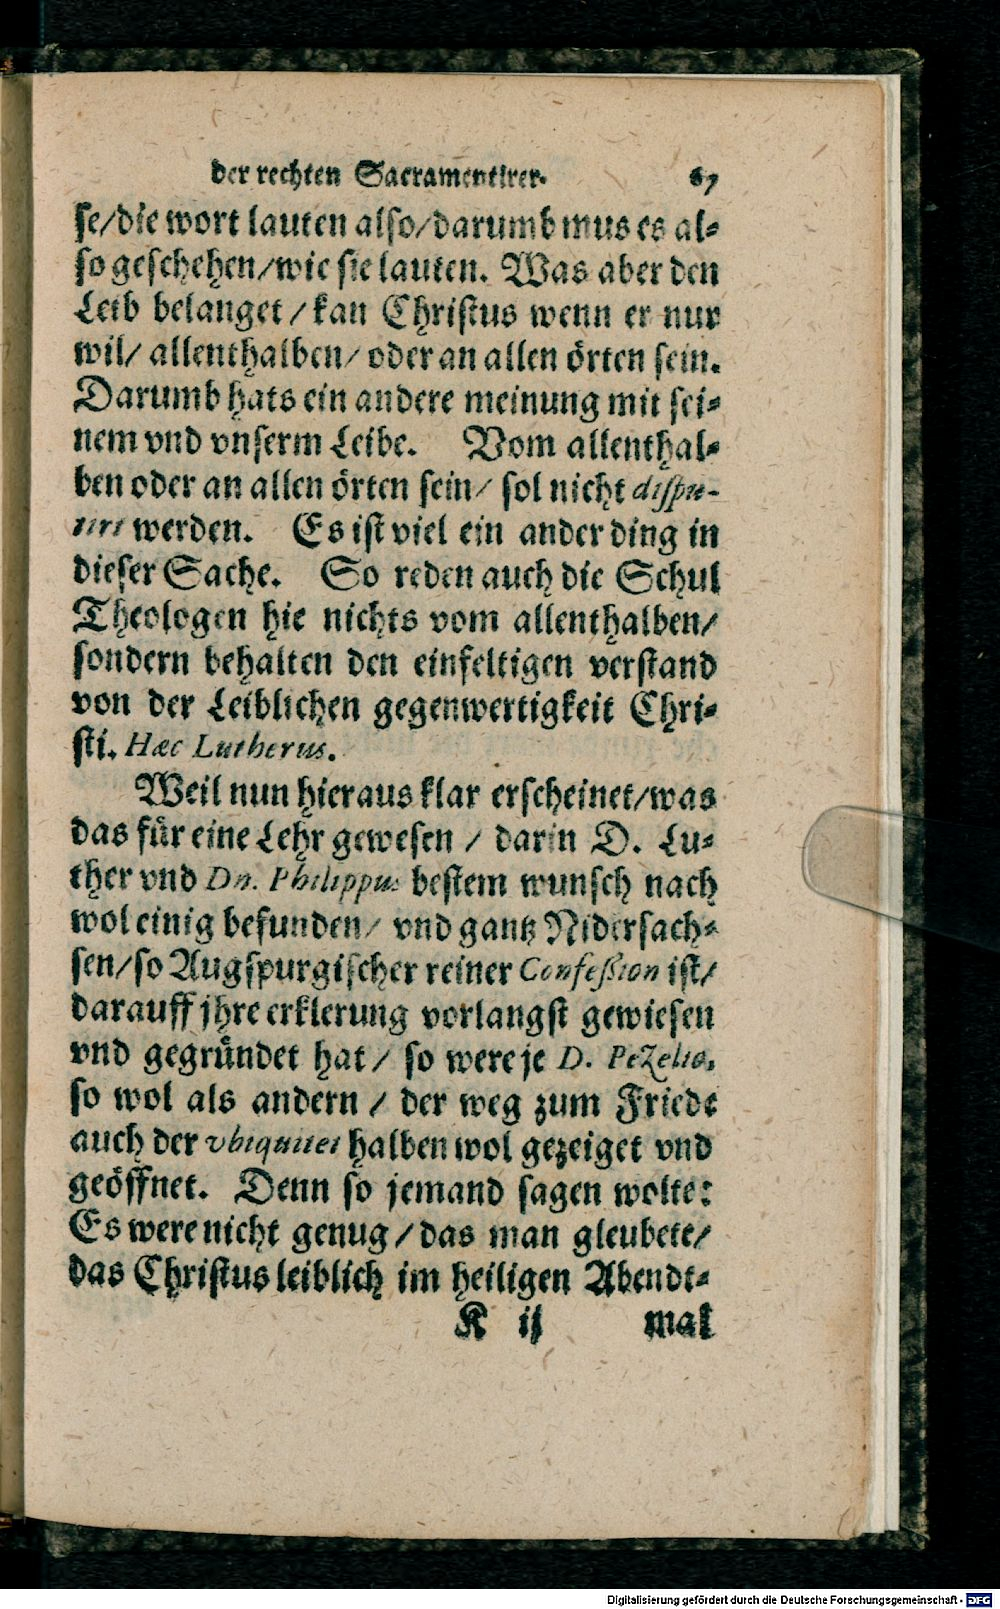 der rechten Sacramentirer. 67
se/die wort lauten also/darumb mus es al-
so geschehen/wie sie lauten. Was aber den
Leib belanget / kan Christus wenn er nur
wil/ allenthalben/ oder an allen örten sein.
Darumb hats ein andere meinung mit sei-
nem vnd vnserm Leibe. Vom allenthal-
ben oder an allen örten sein/ sol nicht dispu-
tirt werden. Es ist viel ein ander ding in
dieser Sache. So reden auch die Schul
Theologen hie nichts vom allenthalben/
sondern behalten den einfeltigen verstand
von der Leiblichen gegenwertigkeit Chri-
sti. Hæc Lutherus.
Weil nun hieraus klar erscheinet/was
das für eine Lehr gewesen / darin D. Lu-
ther vnd Dn. Philippus bestem wunsch nach
wol einig befunden/ vnd gantz Nidersach-
sen/so Augspurgischer reiner Confession ist/
darauff jhre erklerung vorlangst gewiesen
vnd gegründet hat / so were je D. Pezelio,
so wol als andern / der weg zum Friede
auch der vbiquitet halben wol gezeiget vnd
geöffnet. Denn so jemand sagen wolte:
Es were nicht genug / das man gleubete/
das Christus leiblich im heiligen Abendt-
K ij mal
Digitalisierung gefördert durch die Deutsche Forschungsgemeinschaft - DFG